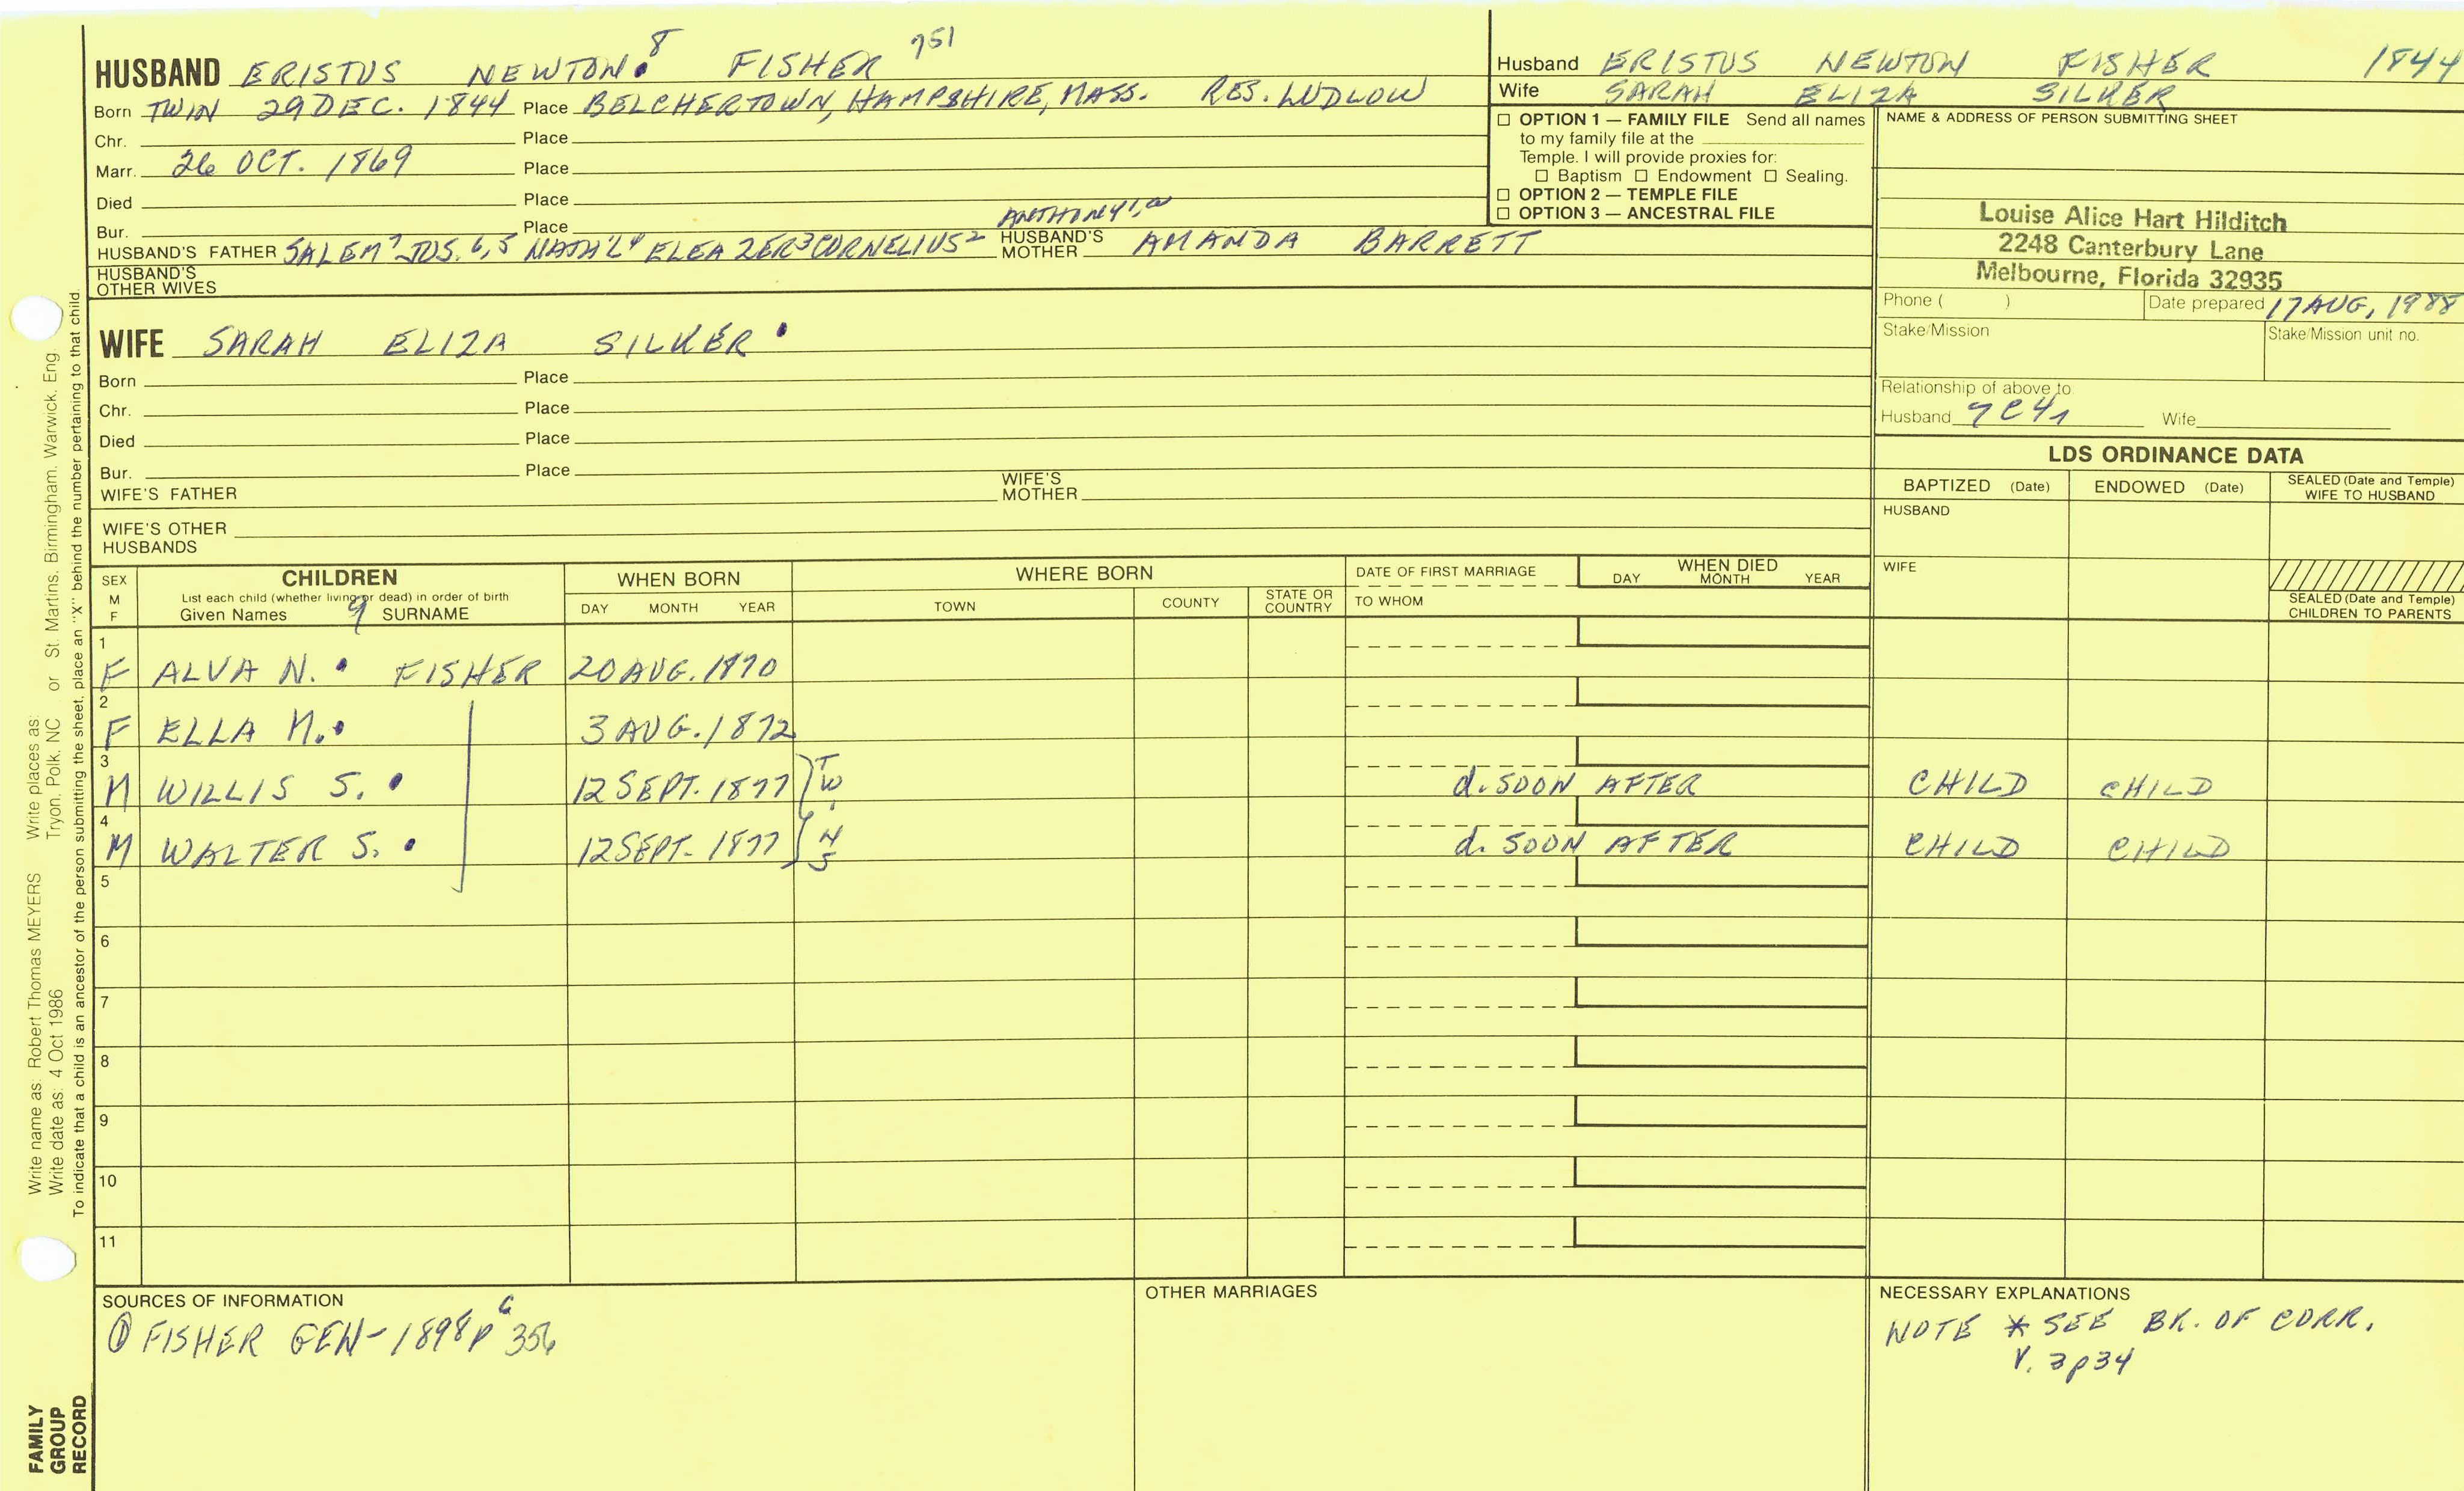 HUSBAND ERISTUS NEWTON 8 FISHER 751
Born TWIN 29 DEC. 1844 Place BELCHERTOWN, HAMPSHIRE, MASS. RES. LUDLOW
Chr. Place
Marr. 26 OCT. 1869 Place
Died Place
Bur. Place
HUSBAND'S FATHER SALEM 7 JOS. 6,5 NATH'L 4 ELEAZER 3 CORNELIUS 2 ANTHONY 1,
HUSBAND'S MOTHER AMANDA BARRETT
HUSBAND'S OTHER WIVES
WIFE SARAH ELIZA SILKER
Born Place
Chr. Place
Died Place
Bur. Place
WIFE'S FATHER WIFE'S MOTHER
WIFE'S OTHER HUSBANDS
Husband ERISTUS NEWTON FISHER 1844
Wife SARAH ELIZA SILKER
☐ OPTION 1 — FAMILY FILE Send all names
to my family file at the
Temple. I will provide proxies for:
☐ Baptism ☐ Endowment ☐ Sealing.
☐ OPTION 2 — TEMPLE FILE
☐ OPTION 3 — ANCESTRAL FILE
NAME & ADDRESS OF PERSON SUBMITTING SHEET
Louise Alice Hart Hilditch
2248 Canterbury Lane
Melbourne, Florida 32935
Phone ( ) Date prepared 17 AUG, 1988
Stake/Mission Stake/Mission unit no.
Relationship of above to
Husband Wife
LDS ORDINANCE DATA
BAPTIZED (Date) ENDOWED (Date) SEALED (Date and Temple) WIFE TO HUSBAND
HUSBAND
WIFE
SEALED (Date and Temple) CHILDREN TO PARENTS
SEX M F
CHILDREN
List each child (whether living or dead) in order of birth
Given Names 9 SURNAME
WHEN BORN
DAY MONTH YEAR
WHERE BORN
TOWN COUNTY STATE OR COUNTRY
DATE OF FIRST MARRIAGE
TO WHOM
WHEN DIED
DAY MONTH YEAR
1 F ALVA N. FISHER 20 AUG. 1870
2 F ELLA M. 3 AUG. 1872
3 M WILLIS S. 12 SEPT. 1877 TW d. SOON AFTER CHILD CHILD
4 M WALTER S. 12 SEPT. 1877 d. SOON AFTER CHILD CHILD
5
6
7
8
9
10
11
SOURCES OF INFORMATION
① FISHER GEN-1898 p 356
OTHER MARRIAGES
NECESSARY EXPLANATIONS
NOTE * SEE BK. OF CORR.
V. 3 p 34
Write name as: Robert Thomas MEYERS Write places as:
Write date as: 4 Oct 1986 Tryon, Polk, NC or St. Martins, Birmingham, Warwick, Eng
To indicate that a child is an ancestor of the person submitting the sheet, place an "X" behind the number pertaining to that child.
FAMILY
GROUP
RECORD